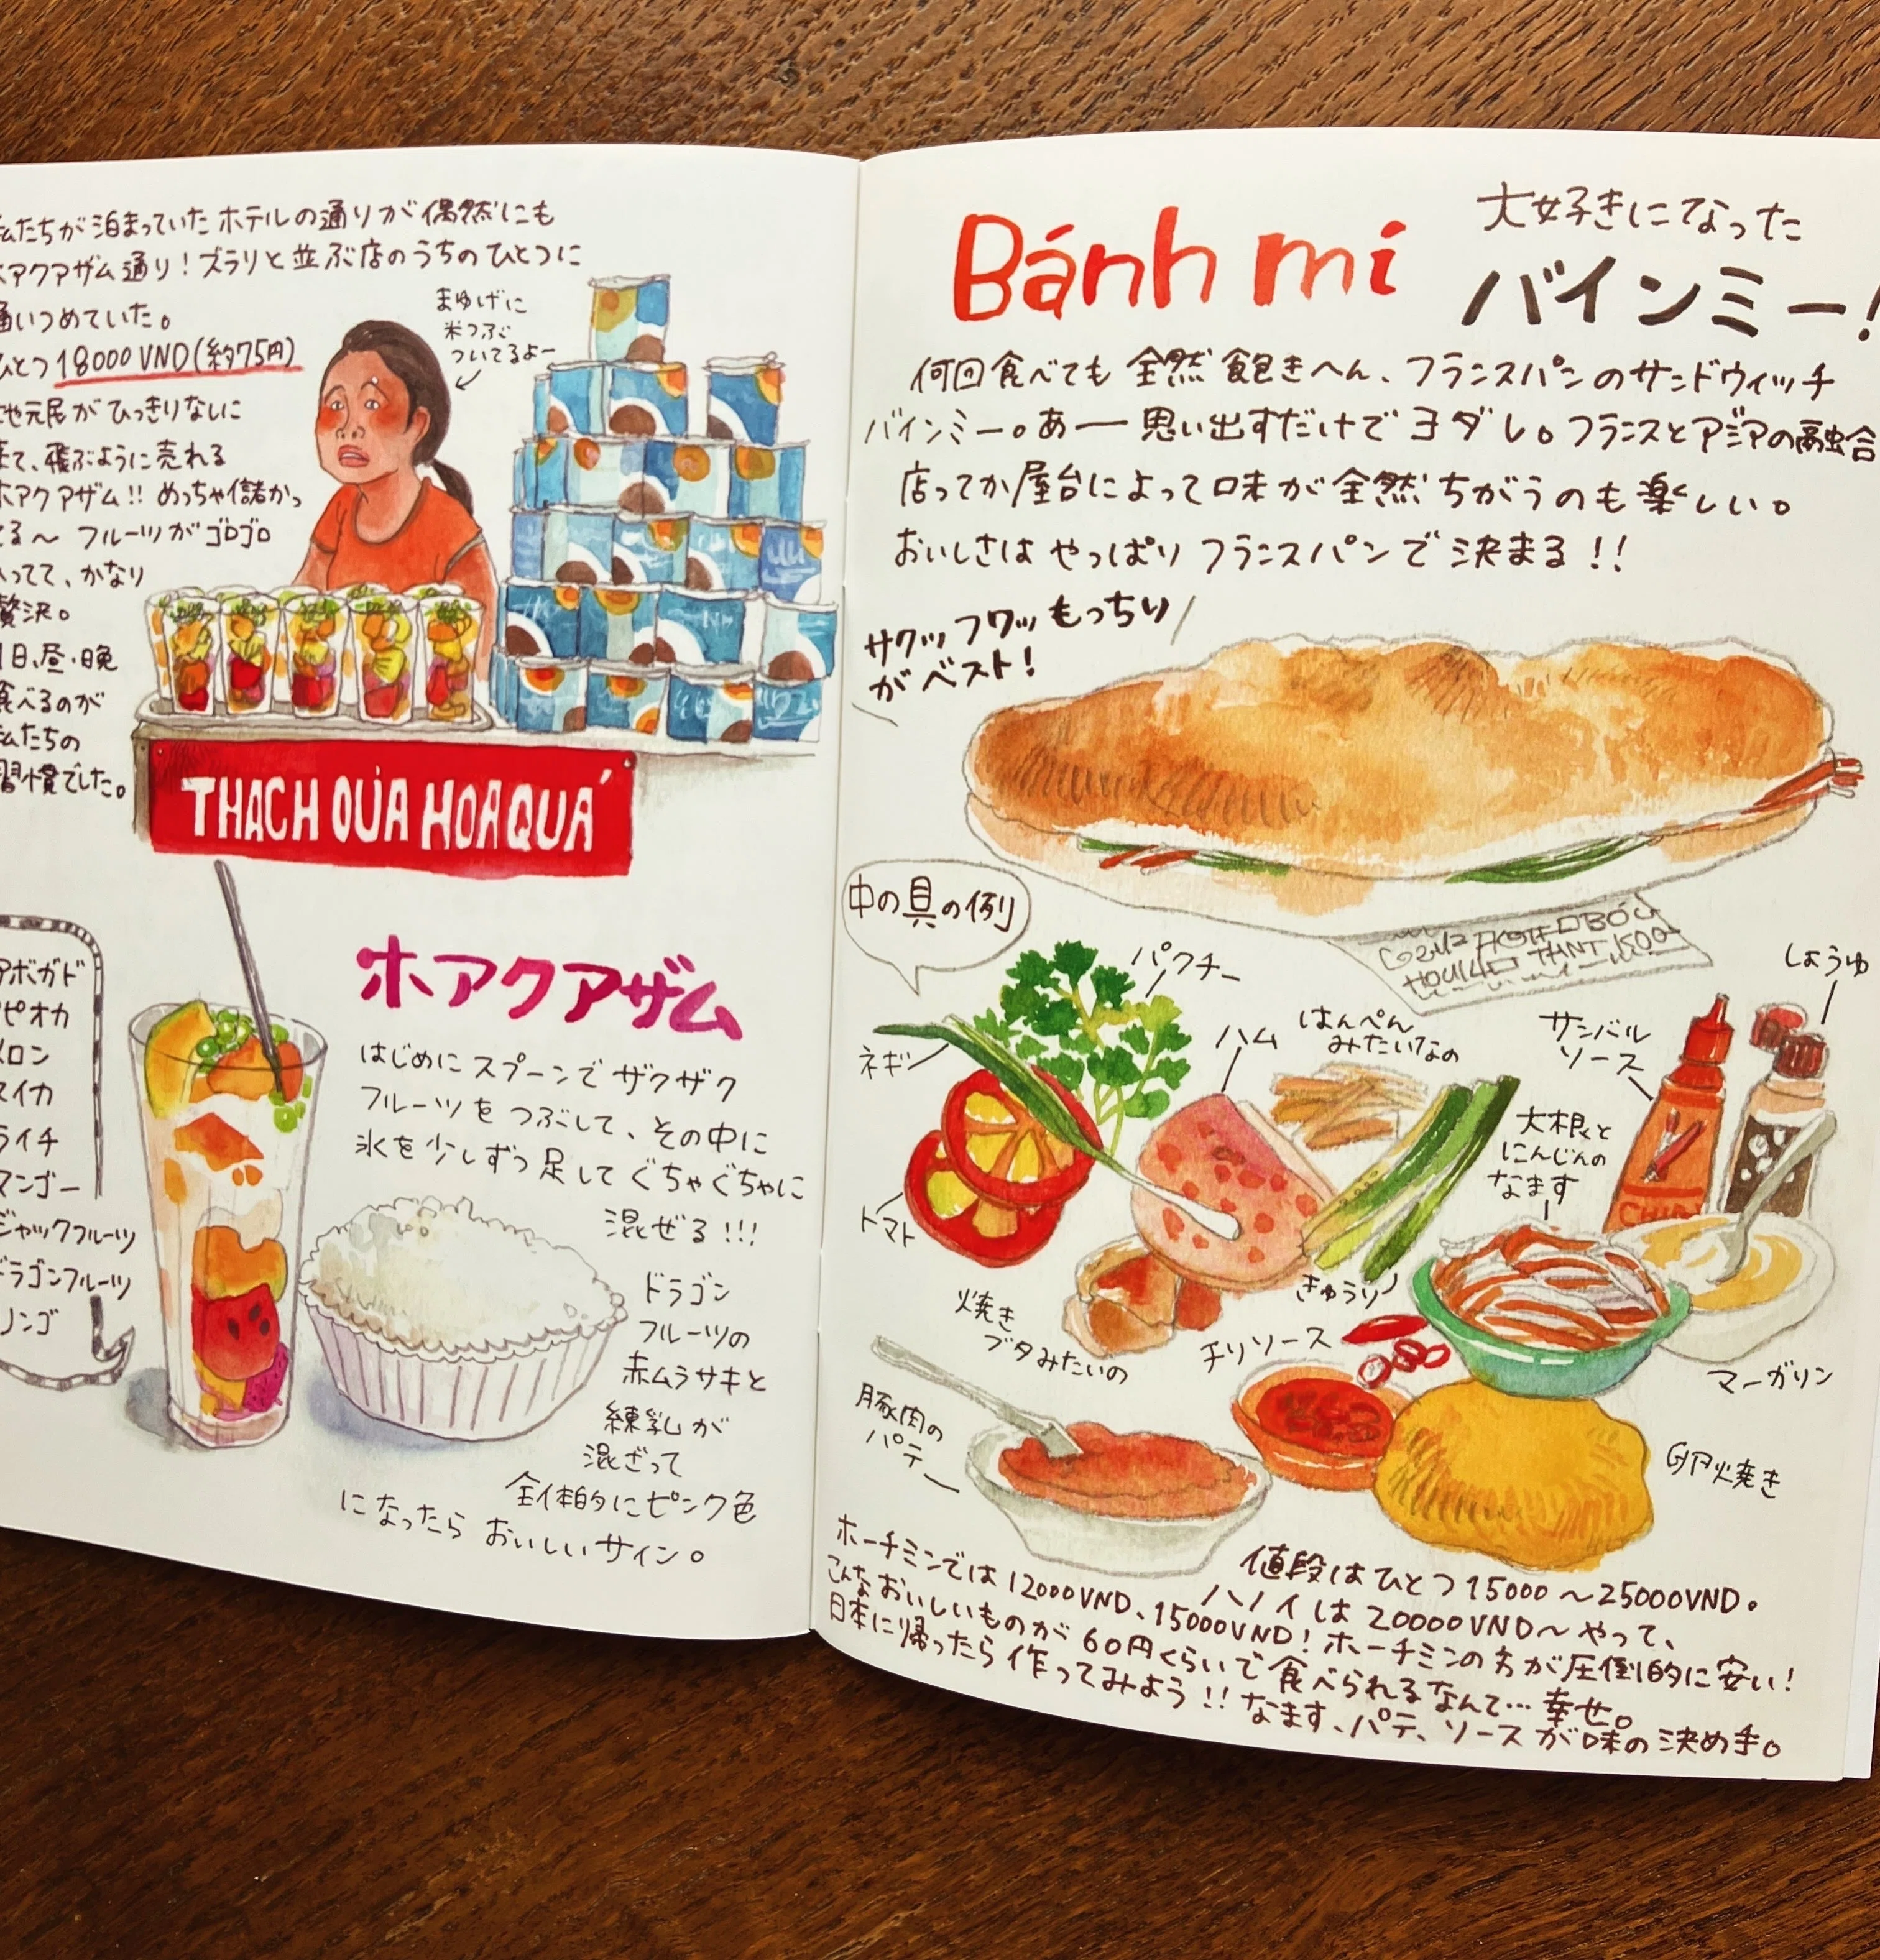 私たちが泊まっていたホテルの通りが偶然にも
ホアクアザム通り！ズラリと並ぶ店のうちのひとつに
通いつめていた。
ひとつ18000VND(約75円)
地元民がひっきりなしに
来て、飛ぶように売れる
ホアクアザム!!めっちゃ儲かっ
てる〜 フルーツがゴロゴロ
入ってて、かなり
贅沢。
1日、昼・晩
食べるのが
私たちの
習慣でした。
まゆげに
米つぶ
ついてるよー
THACH QỦA HOA QUÁ
アボガド
タピオカ
メロン
スイカ
ライチ
マンゴー
ジャックフルーツ
ドラゴンフルーツ
リンゴ
ホアクアザム
はじめにスプーンでザクザク
フルーツをつぶして、その中に
氷を少しずつ足してぐちゃぐちゃに
混ぜる!!!
ドラゴン
フルーツの
赤ムラサキと
練乳が
混ざって
全体的にピンク色
になったらおいしいサイン。
Bánh mí
大好きになった
バインミー!
何回食べても全然飽きへん、フランスパンのサンドウィッチ
バインミー。あー思い出すだけでヨダレ。フランスとアジアの融合
店ってか屋台によって味が全然ちがうのも楽しい。
おいしさはやっぱりフランスパンで決まる!!
サクッフワッもっちり
がベスト!
中の具の例
パクチー
ネギ
ハム
はんぺん
みたいなの
サンバル
ソース
しょうゆ
大根と
にんじんの
なます
トマト
きゅうり
焼き
ブタみたいの
チリソース
マーガリン
豚肉の
パテ
卵焼き
値段はひとつ15000〜25000VND。
ハノイは20000VND〜やって、
ホーチミンでは12000VND、15000VND!ホーチミンの方が圧倒的に安い!
こんなおいしいものが60円くらいで食べられるなんて…幸せ。
日本に帰ったら作ってみよう!!なます、パテ、ソースが味の決め手。